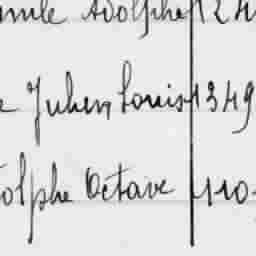 Adolphe 124
e Julien Louis 1349
olphe Octave 110